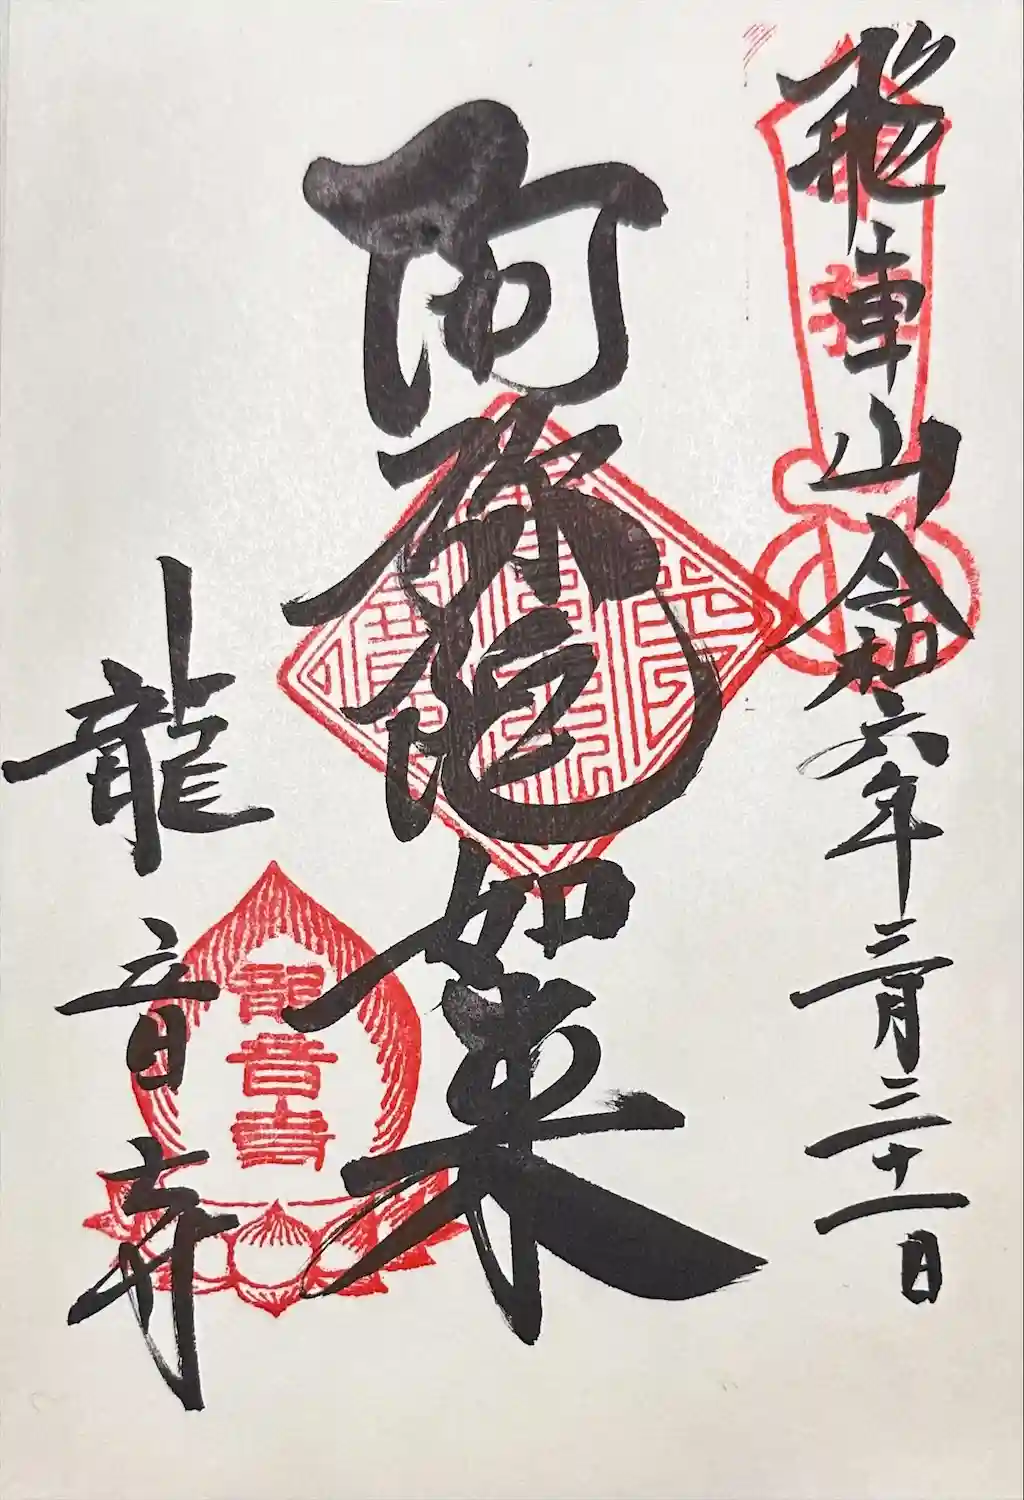 飛車山 令和六年三月三十一日
阿弥陀如来
龍音寺
龍音寺